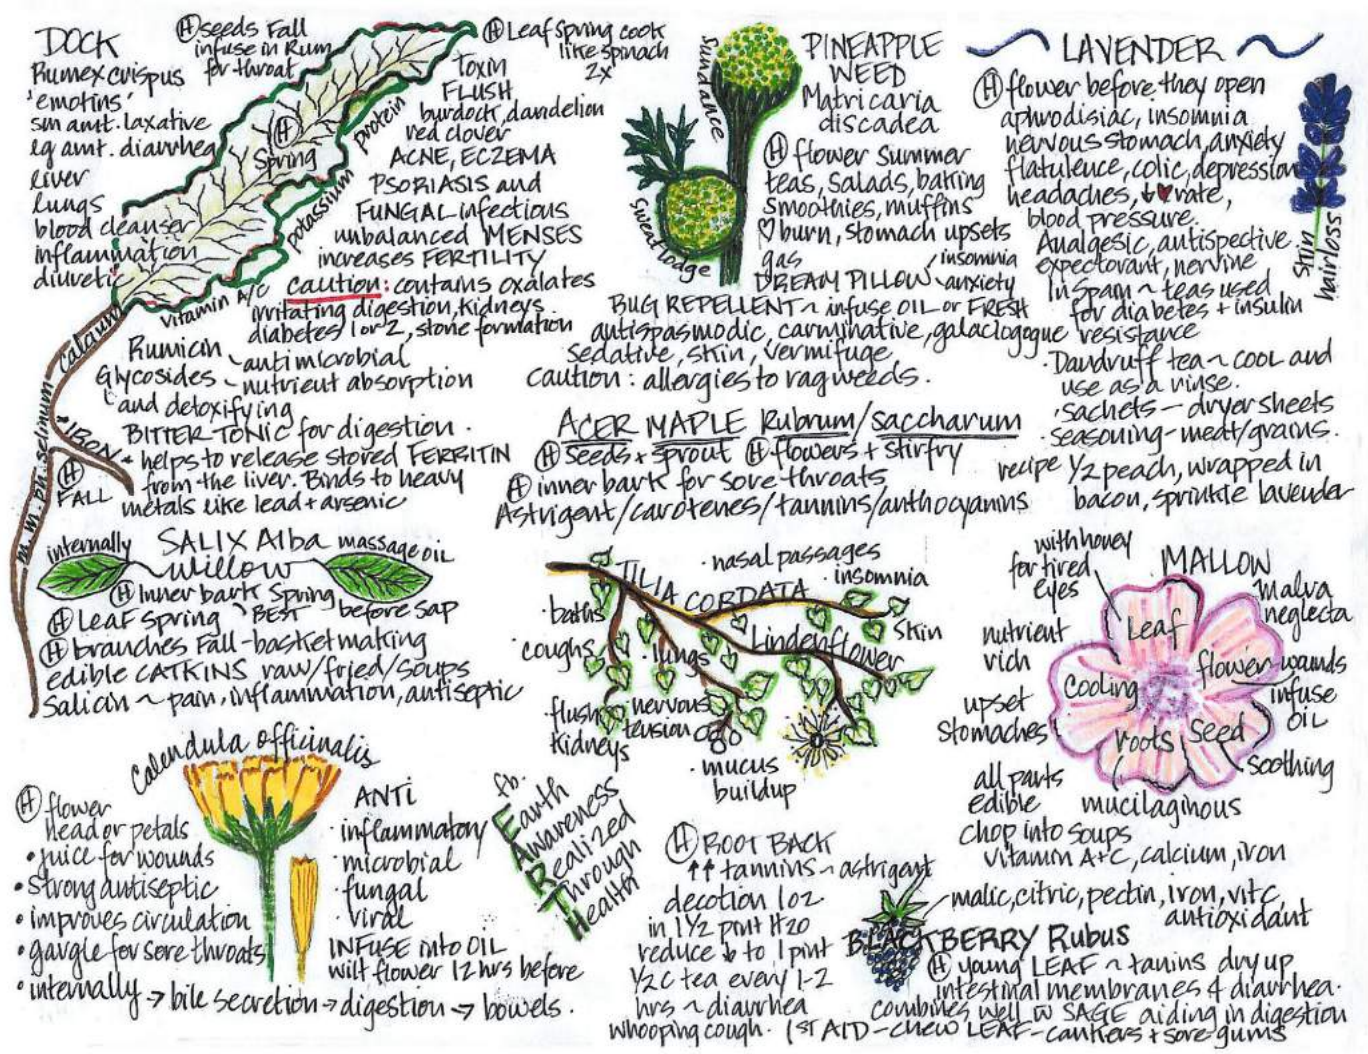 DOCK
Rumex crispus
'emotins'
sm amt. laxative
lg amt. diarrhea
liver
lungs
blood cleanser
inflammation
diuretic
Ⓗ seeds Fall
infuse in Rum
for throat
Ⓗ Leaf Spring cook
like spinach
2x
Ⓗ
Spring
protein
potassium
vitamin A/C
calcium
m.m. ph. selinum
IRON
Ⓗ
FALL
Toxin
FLUSH
burdock, dandelion
red clover
ACNE, ECZEMA
PSORIASIS and
FUNGAL infections
unbalanced MENSES
increases FERTILITY
caution: contains oxalates
irritating digestion, kidneys
diabetes 1 or 2, stone formation
Rumicin - antimicrobial
Glycosides - nutrient absorption
and detoxifying
BITTER TONIC for digestion.
helps to release stored FERRITIN
from the liver. Binds to heavy
metals like lead + arsenic
PINEAPPLE
WEED
Matricaria
discadea
Sundance
Sweatlodge
Ⓗ flower Summer
teas, Salads, baking
smoothies, muffins
♡burn, stomach upsets
gas
DREAM PILLOW - insomnia
anxiety
BUG REPELLENT ~ infuse OIL or FRESH
antispasmodic, carminative, galaclogogue
sedative, skin, vermifuge,
caution: allergies to ragweeds.
LAVENDER
Ⓗ flower before they open
aphrodisiac, insomnia
nervous stomach, anxiety
flatulence, colic, depression
headaches, ↓♥rate,
blood pressure.
Analgesic, antispective
expectorant, nervine
In Spain ~ teas used
for diabetes + insulin
resistance
skin
hairloss
· Dandruff tea ~ cool and
use as a rinse.
· sachets - dryer sheets
· seasoning - meat/grains.
recipe 1/2 peach, wrapped in
bacon, sprinkle lavender
ACER MAPLE Rubrum/saccharum
Ⓗ seeds + sprout Ⓗ flowers + stirfry
Ⓗ inner bark for sore throats
Astrigent/caroteness/tannins/anthocyanins
SALIX Alba
Willow
internally
massage oil
Ⓗ Inner bark Spring
BEST before sap
Ⓗ Leaf Spring
Ⓗ branches Fall - basketmaking
edible CATKINS raw/fried/soups
Salicin ~ pain, inflammation, antiseptic
TILIA CORDATA
Lindenflower
· nasal passages
· insomnia
· baths
· coughs
· lungs
· skin
· flush
kidneys
· nervous
tension
· mucus
buildup
MALLOW
Malva
neglecta
with honey
for tired
eyes
Leaf
flower - wounds
infuse
OIL
Seed
soothing
roots
mucilaginous
Cooling
nutrient
rich
upset
stomaches
all parts
edible
chop into soups
vitamin A+C, calcium, iron
Calendula officinalis
Ⓗ flower
head or petals
• juice for wounds
• Strong antiseptic
• improves circulation
• gargle for sore throats
• internally → bile secretion → digestion → bowels.
ANTi
· inflammatory
· microbial
· fungal
· viral
INFUSE into OIL
wilt flower 12 hrs before
fb.
Earth
Awareness
Realized
Through
Health
Ⓗ ROOT BACK
↑↑ tannins ~ astrigant
decotion 1oz
in 1 1/2 pint H20
reduce ↓ to 1 pint
1/2 C tea every 1-2
hrs ~ diarrhea
whooping cough.
malic, citric, pectin, iron, vit C,
antioxidant
BLACKBERRY Rubus
Ⓗ young LEAF ~ tanins dry up
intestinal membranes & diarrhea.
combines well w SAGE aiding in digestion
1st AID - chew LEAF - cankers + sore gums